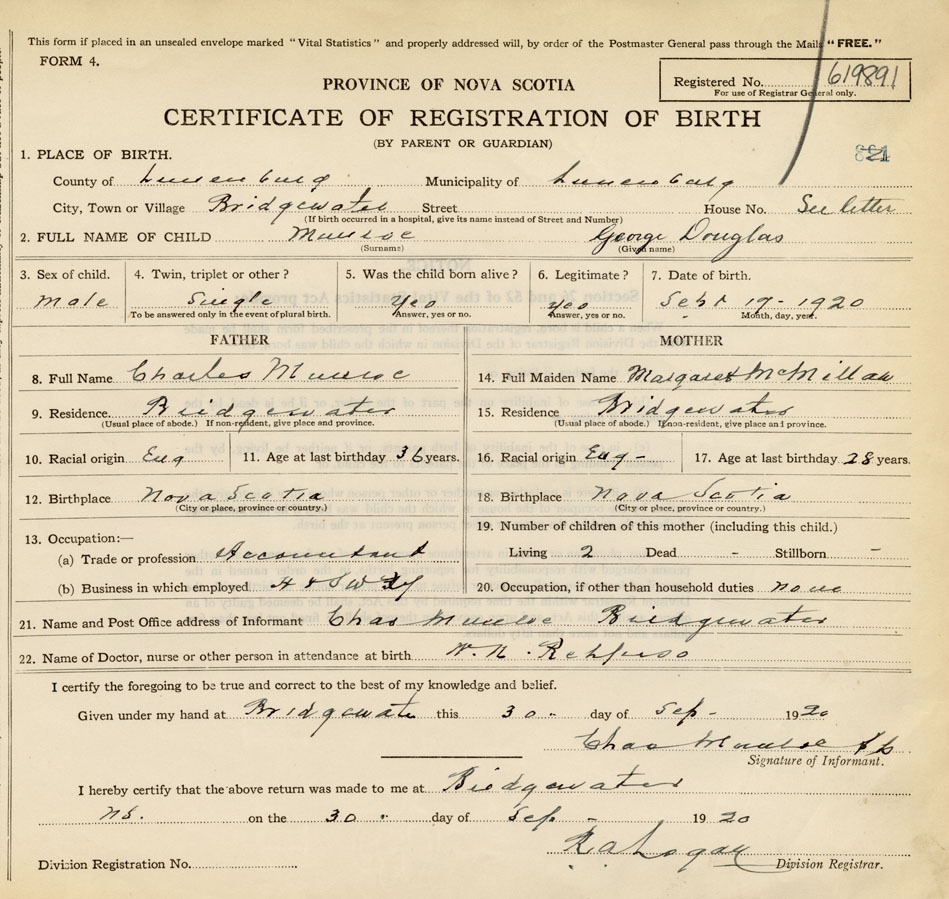 This form if placed in an unsealed envelope marked "Vital Statistics" and properly addressed will, by order of the Postmaster General pass through the Mails "FREE."
FORM 4.
PROVINCE OF NOVA SCOTIA
Registered No. 619891
For use of Registrar General only.
CERTIFICATE OF REGISTRATION OF BIRTH
(BY PARENT OR GUARDIAN)
1. PLACE OF BIRTH.
County of Lunenburg Municipality of Lunenburg
City, Town or Village Bridgewater Street House No. See letter
(If birth occurred in a hospital, give its name instead of Street and Number)
2. FULL NAME OF CHILD Munroe George Douglas
(Surname) (Given name)
3. Sex of child. 4. Twin, triplet or other? 5. Was the child born alive? 6. Legitimate? 7. Date of birth.
Male Single Yes Yes Sept 17 - 1920
To be answered only in the event of plural birth. Answer, yes or no. Answer, yes or no. Month, day, year.
FATHER MOTHER
8. Full Name Charles Munroe 14. Full Maiden Name Margaret McMillan
9. Residence. Bridgewater 15. Residence Bridgewater
(Usual place of abode.) If non-resident, give place and province. (Usual place of abode.) If non-resident, give place and province.
10. Racial origin Eng 11. Age at last birthday 36 years. 16. Racial origin Eng - 17. Age at last birthday 28 years.
12. Birthplace Nova Scotia 18. Birthplace Nova Scotia
(City or place, province or country.) (City or place, province or country.)
13. Occupation:— 19. Number of children of this mother (including this child.)
(a) Trade or profession Accountant Living 2 Dead - Stillborn -
(b) Business in which employed H & S W Ry 20. Occupation, if other than household duties none
21. Name and Post Office address of Informant Chas Munroe Bridgewater
22. Name of Doctor, nurse or other person in attendance at birth W. N.
I certify the foregoing to be true and correct to the best of my knowledge and belief.
Given under my hand at Bridgewater this 30 - day of Sep - 1920
Chas Munroe
Signature of Informant.
I hereby certify that the above return was made to me at Bridgewater
NS. on the 30 day of Sep - 1920
Logan
Division Registration No. Division Registrar.